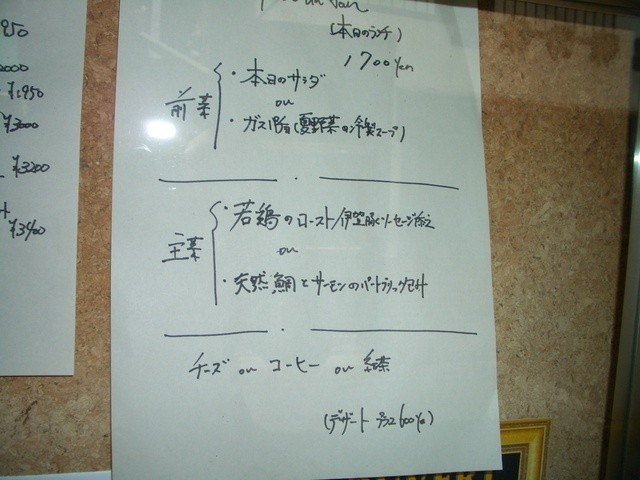 950
2000
¥1950
¥3000
¥3200
¥3400
(本日のランチ)
1700Yen
前菜
・本日のサラダ
ou
・ガスパチョ(夏野菜の冷製スープ)
主菜
・若鶏のロースト/伊賀豚ソーセージ添え
ou
・天然鯛とサーモンのパートブリック包み
チーズ ou コーヒー ou 紅茶
(デザート プラス600Yen)